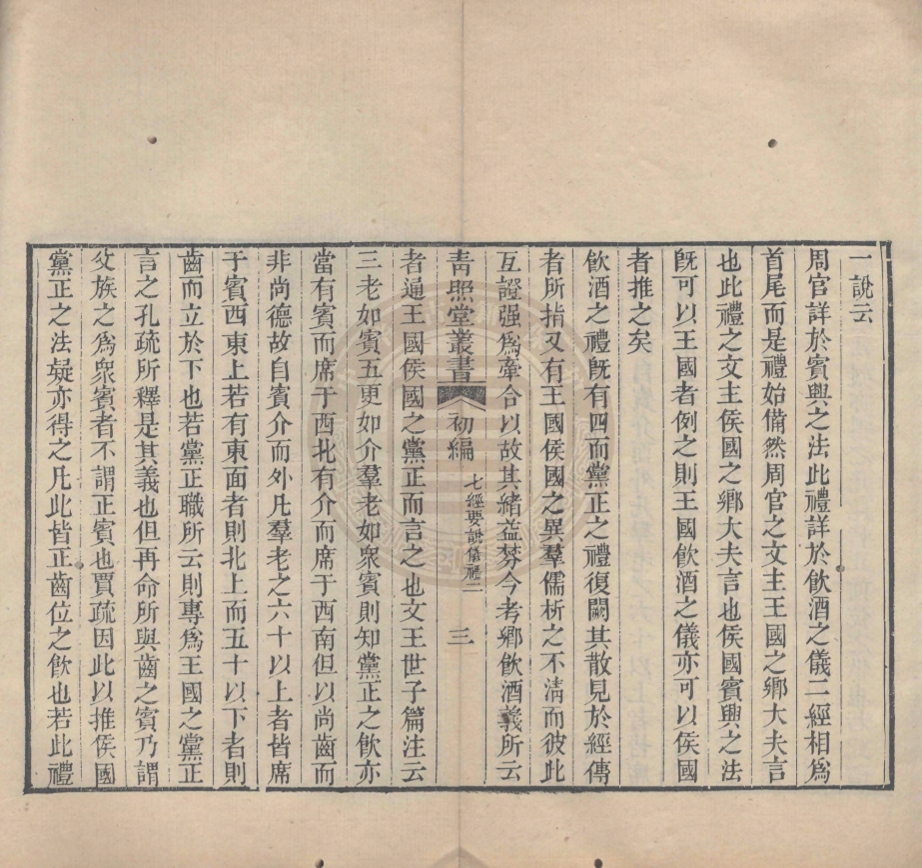 一說云
周官詳於賓興之法此禮詳於飲酒之儀二經相爲
首尾而是禮始備然周官之文主王國之鄉大夫言
也此禮之文主侯國之鄉大夫言也侯國賓興之法
旣可以王國者例之則王國飲酒之儀亦可以侯國
者推之矣
飲酒之禮旣有四而黨正之禮復闕其散見於經傳
者所指又有王國侯國之異羣儒析之不淸而彼此
互證强爲牽合以故其緒益棼今考鄉飲酒義所云
靑照堂叢書 初編 七經要說儀禮二 三
者通王國侯國之黨正而言之也文王世子篇注云
三老如賓五更如介羣老如衆賓則知黨正之飲亦
當有賓而席于西北有介而席于西南但以尚齒而
非尚德故自賓介而外凡羣老之六十以上者皆席
于賓西東上若有東面者則北上而五十以下者則
齒而立於下也若黨正職所云則專爲王國之黨正
言之孔疏所釋是其義也但再命所與齒之賓乃謂
父族之爲衆賓者不謂正賓也賈疏因此以推侯國
黨正之法疑亦得之凡此皆正齒位之飲也若此禮